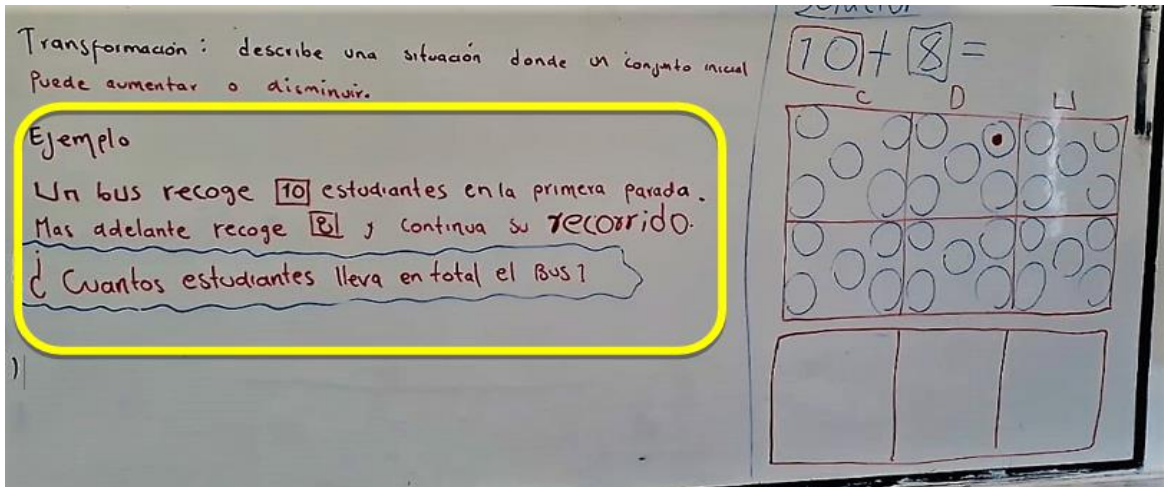 Transformación: describe una situación donde un conjunto inicial
Puede aumentar o disminuir.
Ejemplo
Un bus recoge 10 estudiantes en la primera parada.
Mas adelante recoge 8 y continua su recorrido.
¿Cuantos estudiantes lleva en total el Bus?
)
Solución
10 + 8 =
C D U